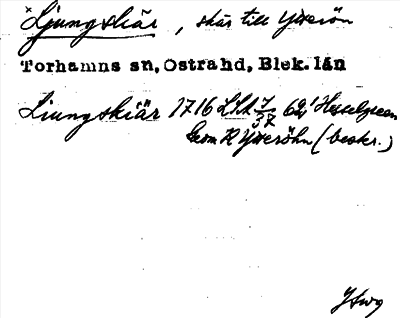 Ljungskär, skär till Ytterön
Torhamns sn, Ostrahd, Blek. län
Liungskiär 1716 LSA 7/37 62¹
Geom R Ytteröhn (beskr.)